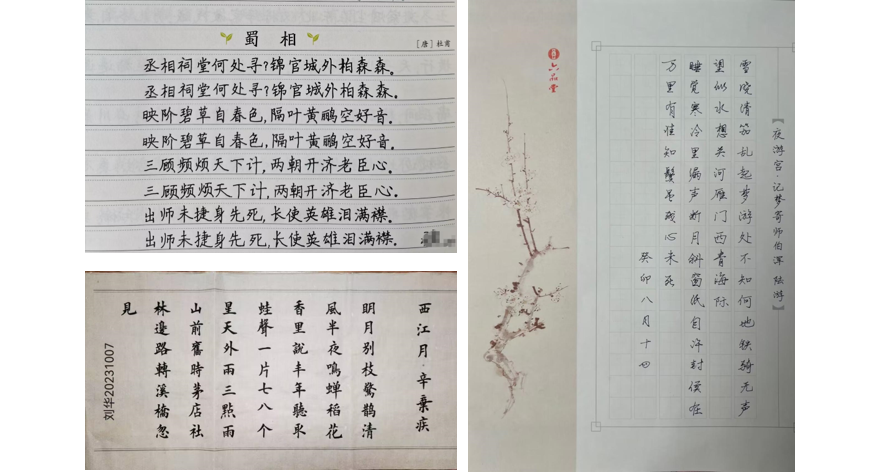 蜀 相
[唐] 杜甫
丞相祠堂何处寻?锦官城外柏森森。
丞相祠堂何处寻?锦官城外柏森森。
映阶碧草自春色,隔叶黄鹂空好音。
映阶碧草自春色,隔叶黄鹂空好音。
三顾频烦天下计,两朝开济老臣心。
三顾频烦天下计,两朝开济老臣心。
出师未捷身先死,长使英雄泪满襟。
出师未捷身先死,长使英雄泪满襟。
西江月·辛棄疾
明月别枝驚鹊清
風半夜鳴蝉稻花
香里説丰年聽取
蛙聲一片七八个
星天外兩三點雨
山前舊時茅店社
林邊路轉溪橋忽
見
刘华20231007
六品堂
《夜游宫·记梦寄师伯浑 陆游》
雪晓清笳乱起梦游处不知何地铁骑无声
望似水想关河雁门西青海际
睡觉寒冷里漏声断月斜窗纸自许封侯在
万里有谁知鬓虽残心未死
癸卯八月十四